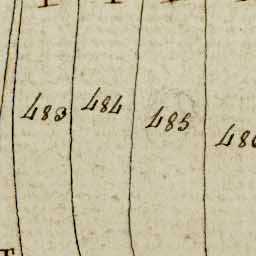 483 484 485